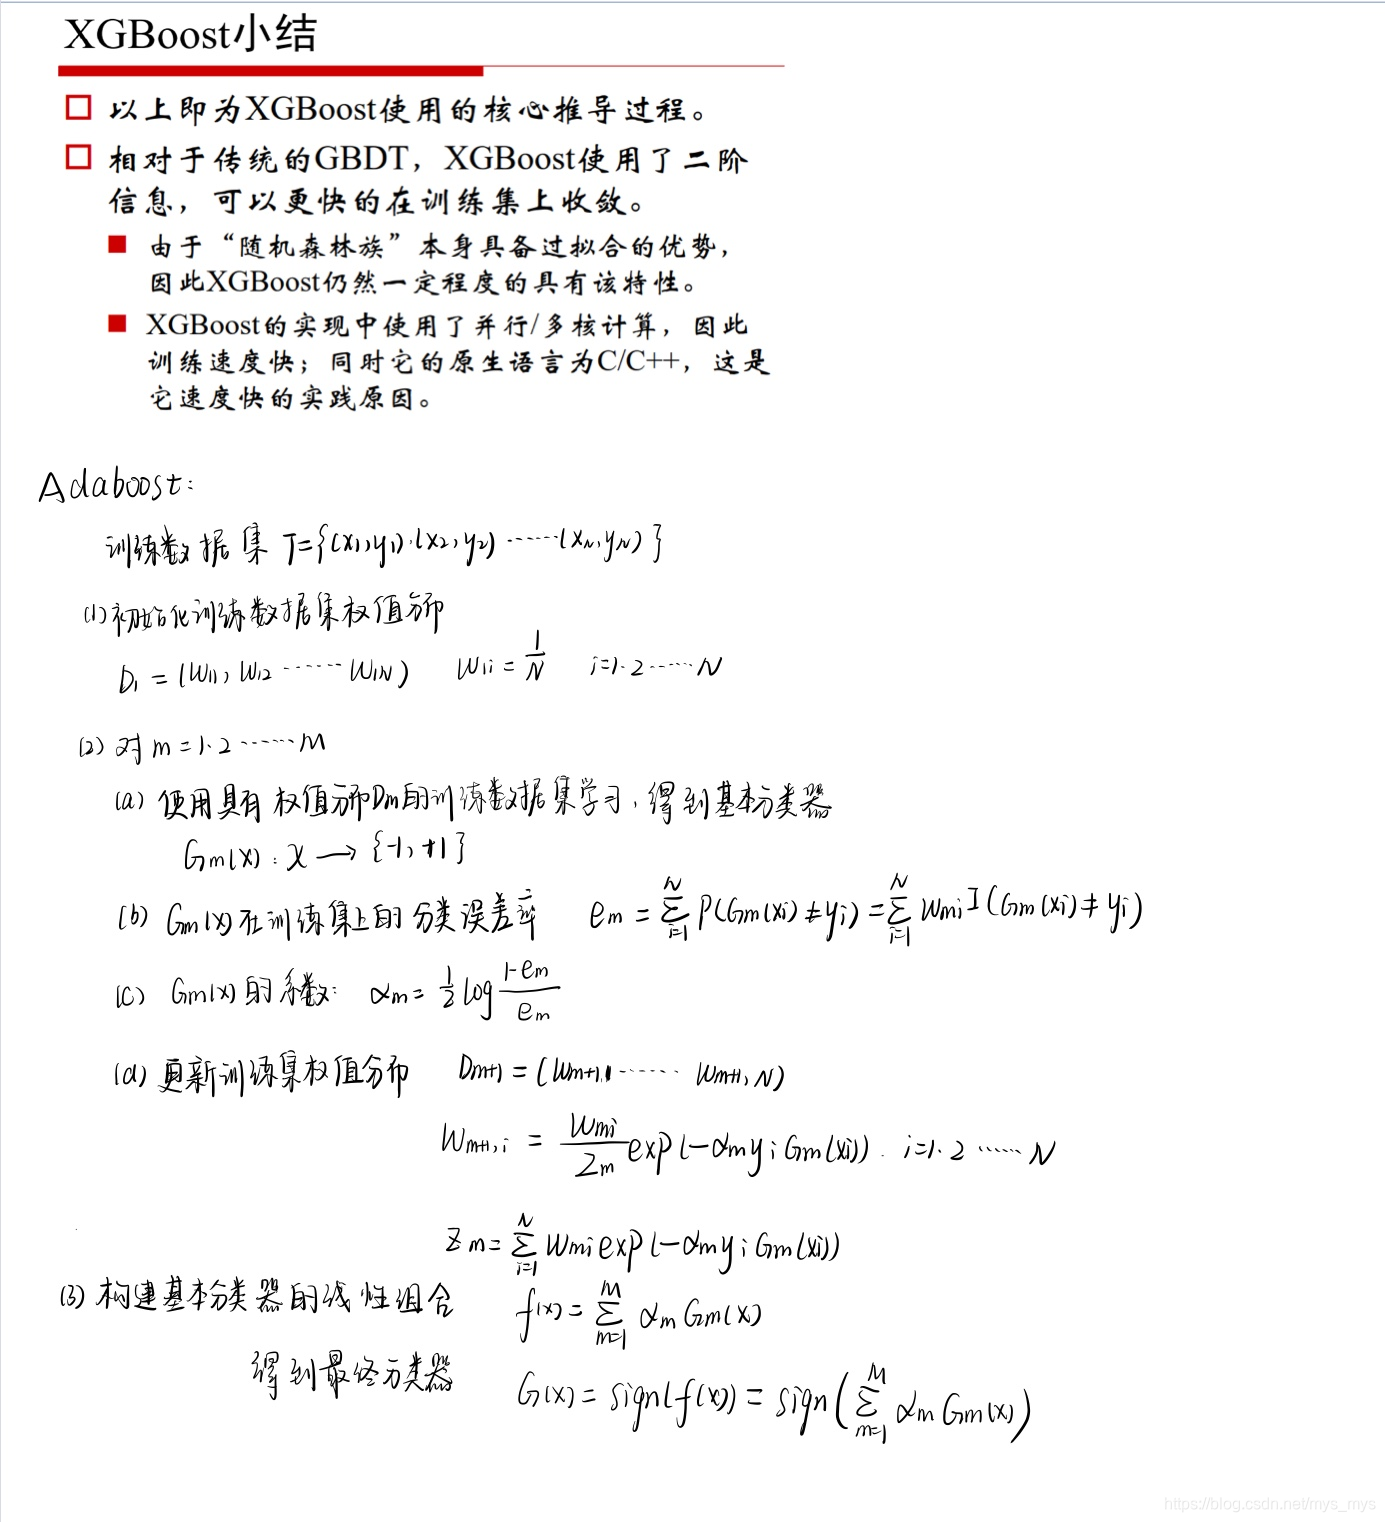 XGBoost小结
以上即为XGBoost使用的核心推导过程。
相对于传统的GBDT，XGBoost使用了二阶
信息，可以更快的在训练集上收敛。
由于“随机森林族”本身具备过拟合的优势，
因此XGBoost仍然一定程度的具有该特性。
XGBoost的实现中使用了并行/多核计算，因此
训练速度快；同时它的原生语言为C/C++，这是
它速度快的实践原因。
Adaboost:
训练数据集 T={(x₁,y₁),(x₂,y₂)······(x_N,y_N)}
(1) 初始化训练数据集权值分布
D₁ = (w₁₁, w₁₂ ······ w₁N) w₁ᵢ = 1/N i=1·2······N
(2) 对 m=1·2······M
(a) 使用具有权值分布Dm的训练数据集学习,得到基本分类器
Gm(x): x → {-1, +1}
(b) Gm(x)在训练集上的分类误差率 em = Σ_{i=1}^{N} P(Gm(xi) ≠ yi) = Σ_{i=1}^{N} wmi I(Gm(xi) ≠ yi)
(c) Gm(x)的系数: αm = 1/2 log (1-em)/em
(d) 更新训练集权值分布 Dm+1 = (wm+1,1 ······ wm+1,N)
wm+1,i = wmi/Zm exp(-αm yi Gm(xi)). i=1·2······N
Zm = Σ_{i=1}^{N} wmi exp(-αm yi Gm(xi))
(3) 构建基本分类器的线性组合 f(x) = Σ_{m=1}^{M} αm Gm(x)
得到最终分类器 G(x) = sign(f(x)) = sign(Σ_{m=1}^{M} αm Gm(x))
https://blog.csdn.net/mys_mys